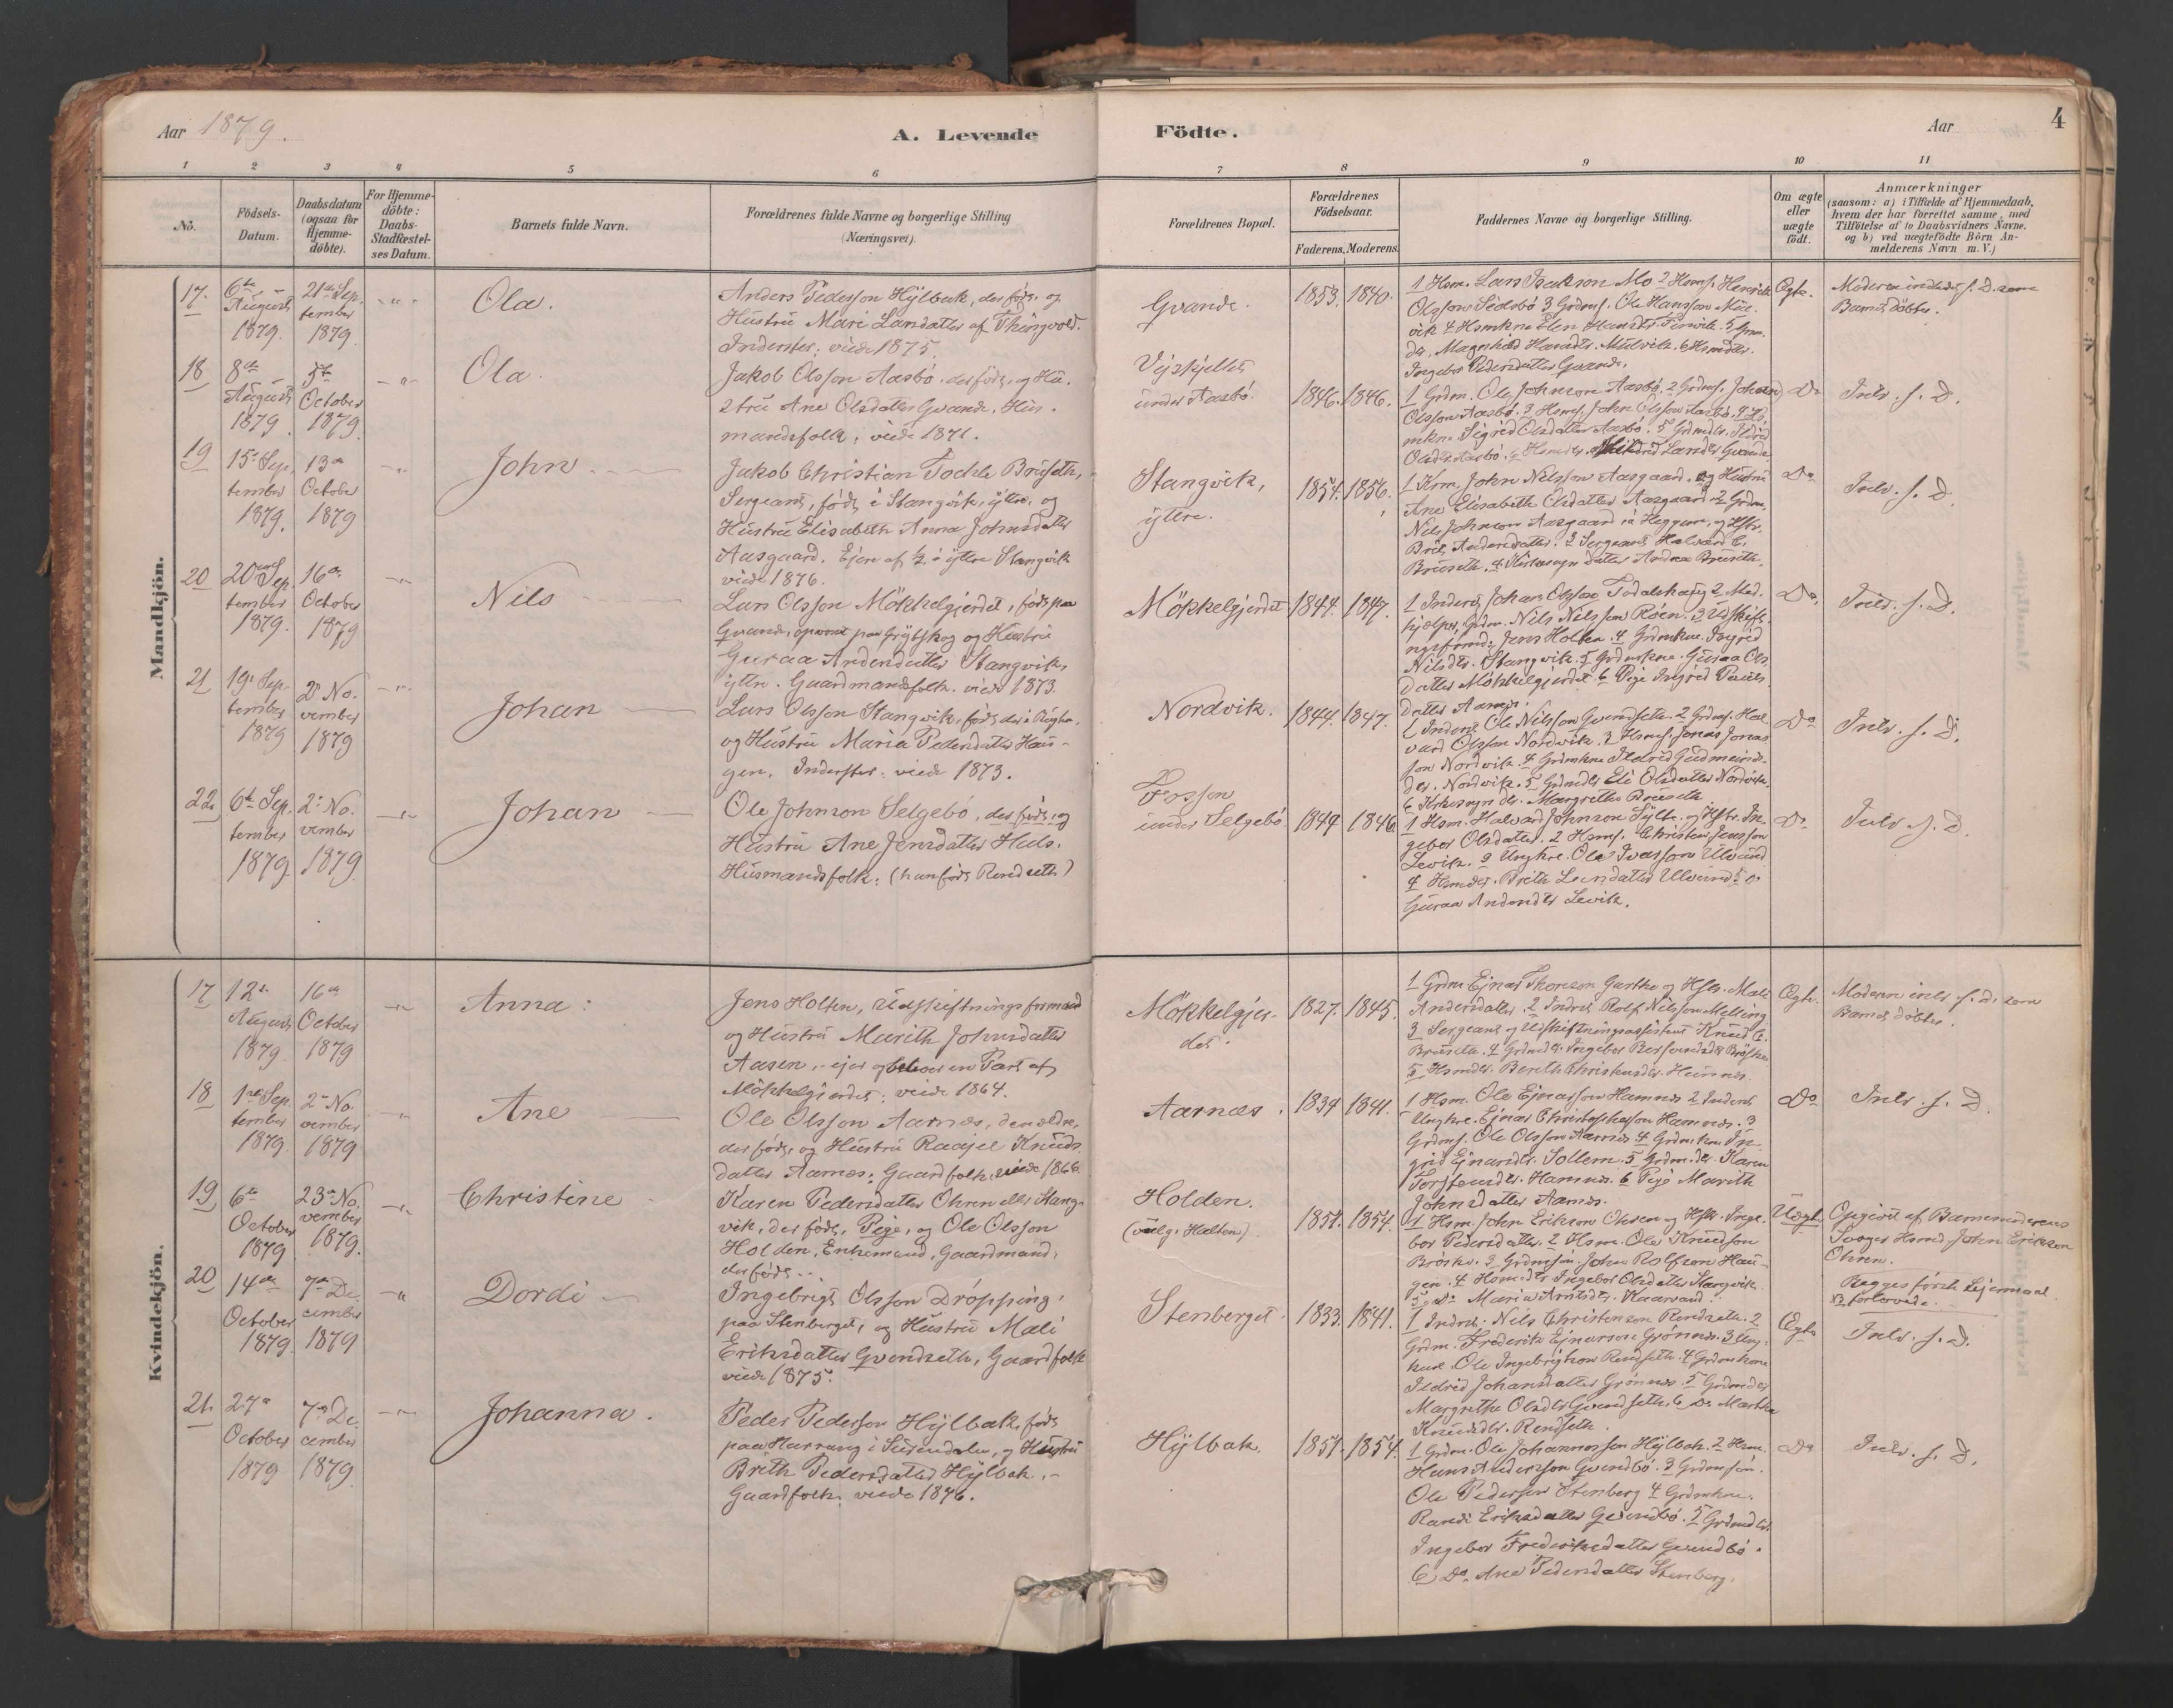 Aar 1879.
A. Levende
Födte.
Aar
4
1 2 3 4 5 6 7 8 9 10 11
No.
Födsels-
Datum.
Daabsdatum
(ogsaa for
Hjemme-
döbte).
For Hjemme-
döbte:
Daabs-
Stadfæstel-
ses Datum.
Barnets fulde Navn.
Forældrenes fulde Navne og borgerlige Stilling
(Næringsvei).
Forældrenes Bopæl.
Forældrenes
Födselsaar.
Faderens. Moderens.
Faddernes Navne og borgerlige Stilling.
Om ægte
eller
uægte
födt.
Anmærkninger
(saasom: a) i Tilfælde af Hjemmedaab,
hvem der har forrettet samme, med
Tilföielse af to Daabsvidners Navne.
og b) ved uægtefödte Börn An-
melderens Navn m. V.)
Mandkjön.
17.
6te
August
1879.
21de Sep-
tember
1879.
Ola.
Anders Pederson Hylbak, der föds. og
Hustru Mari Larsdatter af Thingvold.
Inderster: viede 1875.
Gvande.
1853. 1840.
1 Hsm. Lars Isakson Mo 2 Hsmf. Henrik
Olsson Sedsbö 3 Grdmf. Ole Hansson
vik 4 Hsmkne
dr. Magnhild Hansdtr.
Ingebor Pedersdatter Gvande.
Ægte.
Moderen f. D. som
Barnet döbtes.
18
8de
August
1879.
5te
October
1879.
Ola.
Jakob Olsson Aasbö. der föds, og Hu-
stru Ane Olsdatter Gvande, Hus-
mandsfolk; viede 1871.
under Aasbö.
1846. 1846.
1 Grdm. Ole Johnson Aasbö. 2 Grdmf. John
Olsson Aasbö. 3 Hsmf. John Olsson Aasbö. 4
mkne Sigrid Olsdatter Aasbö. 5 Grdmdtr. Ildrid
Olsdtr. Aasbö. 6 Hsmdtr. Larsdtr Gvande.
Do
Intr. f. D.
19
15. Sep-
tember
1879.
13de
October
1879
John
Jakob Christian Bruseth,
Sergeant, föds i Stangvik, ytre, og
Hustru Elisabeth Anna Johnsdatter
Aasgaard. Ejere af ½ i ytre Stangvik
viede 1876.
Stangvik,
ytre.
1854. 1856.
1 Hsm. John Nilsson Aasgaard. og Hustru
Ane Elisabeth Olsdatter Aasgaard 2 Grdm.
Nils Johnson Aasgaard og Hstr.
Brit Andersdatter. 3 Sergeant Halvard C.
Bruseth. 4 Kirkesangrdatter Andrea Bruseth.
Do
Intr. f. D.
20
20de Sep
tember
1879.
16de
October
1879
Nils
Lars Olsson Mökkelgjerdet, föds paa
Gvande, opvoxet paa og Hustru
Guraa Andersdatter Stangvik,
ytre. Gaardmandsfolk. viede 1873.
Mökkelgjerdet
1844. 1847.
1 Inderst Johan Olsson Todalshaug 2 Med-
hjælper, Grdm. Nils Nilsson Röen. 3 Udskift-
ningsformd. Jens Holten. 4 Grdmkne. Ingrid
Nilsdtr. Stangvik. 5 Grdmkne. Guraa Ols-
datter Mökkelgjerdet 6 Pige Ingrid
datter
Do
Intr. f. D.
21
19. Sep-
tember
1879
2. No-
vember
1879
Johan
Lars Olsson Stangvik, föds der i
og Hustru Maria Pedersdatter Hau-
gen, Inderster; viede 1873.
Nordvik.
1844. 1847.
1 Inderst Ole Nilsson Gvendseth. 2 Grdmf. Hal-
vard Olsson Nordvik. 3 Hsmf. Jonas Jonas-
son Nordvik. 4 Grdmkne Ildrid Gudmunds-
dtr. Nordvik. 5 Grdmdtr. Eli Olsdatter Nordvik.
6 Kirkesangr dtr. Margrethe Bruseth
Do
Intr. f. D.
22
6te Sep
tember
1879
2. No-
vember
1879
Johan
Ole Johnson Selgebö, der föds, og
Hustru Ane Jensdatter Huls.
Husmandsfolk. (hun föds Rendseth)
under Selgebö
1849 1846
1 Hsm. Halvard Johnson og Hstr. In-
gebor Olsdatter. 2 Hsmf. Christen Jensson
Levik. 3 Ungkre. Ole Ivarsson Ulvund
4 Hsmdtr. Brith Larsdatter Ulvund 5
Guraa Andersdtr Levik.
Do
Intr. f. D.
Kvindekjön.
17
12te
August
1879.
16de
October
1879
Anna:
Jens Holten, Udskiftningsformand
og Hustru Marith Johnsdatter
Aasen, ejer og beboer en Part af
Mökkelgjerdet; viede 1864.
Mökkelgjer-
det.
1827. 1845.
1 Grdm Ejnar Thoreson og Hstr. Mali
Andersdatter. 2 Inderst Rolf Nilsson Melling
3 Sergeant og Udskiftningsassistent Knud C.
Bruseth. 4 Grdmdtr. Ingebor
5 Hsmdtr. Bereth Christensdtr. Hamnes.
Ægte.
Moderen intr. f. D. som
Barnet döbtes.
18
1ste Sep
tember
1879.
2. No-
vember
1879
Ane
Ole Olsson Aarnæs, den ældre,
der föds, og Hustru Raagel Knuds-
datter Aarnæs; Gaardfolk. viede 1866.
Aarnæs.
1834 1841.
1 Hsm. Ole Ejnarsson Hamnes 2 Inderst
Ungkre. Ejnar Christophersson Hamnes. 3
Grdmf. Ole Olsson Aarnæs 4 Grdmkone In-
grid Ejnarsdtr. Sollem. 5 Grdm.dtr. Karen
Torsteinsdtr. Hamnes. 6 Pige Marith
Johnsdatter Aarnæs.
Do
Intr. f. D.
19
6te
October
1879
23de No-
vember
1879.
Christine
Karen Pedersdatter Öhren eller Stang-
vik, der föds, Pige, og Ole Olsson
Holden, Enkemand, Gaardmand,
der föds.
Holden.
(vulg. Halten)
1851. 1854.
1 Hsm. John Erikson Öhren og Hstr. Inge-
bor Pedersdatter. 2 Hsm. Ole Knudson
3 Grdmsön. John Rolfson Hau-
gen. 4 Hsmdtr Ingebor Olsdatter Stangvik.
5 do Maria Arntsdtr. Kaarvand.
Uægte
Opgivet af Barnemoderens
Svoger Hsmd. John Erikson
Öhren.
Begges förste Lejermaal.
20
14de
October
1879.
7de De-
cember
1879
Dordi
Ingebrigt Olsson Dröpping,
paa Stenberget, og Hustru Mali
Eriksdatter Gvendseth, Gaardfolk
viede 1875.
Stenberget.
1833. 1841.
1 Inderst. Nils Christenson Rendseth. 2
Grdm. Frederik Ejnarson Grönnes. 3 Ung-
karl Ole Ingebrigtson Rendseth. 4 Grdmkone
Ildrid Johansdatter Grönnes 5 Grdmdtr
Margrethe Olsdtr Gvendseth. 6 Do Martha
Knudsdtr. Rendseth.
Ægte
Intr. f. D.
21.
27de
October
1879
7de De-
cember
1879.
Johanna.
Peder Pederson Hylbak, föds
paa Harrang i Surendalen, og Hustru
Brith Pedersdatter Hylbak.
Gaardfolk. viede 1876.
Hylbak.
1851. 1854.
1 Grdm. Ole Johannesson Hylbak. 2 Hsm.
Hans Anderson Gvendbö. 3 Grdmsön.
Ole Pederson Stenberg 4 Grdmkone.
Randi Eriksdatter Gvendbö. 5 Grdmdtr.
Ingebor Frederiksdatter Gvendbö.
6 Do. Ane Pedersdatter Stenberg.
Do
Intr. f. D.